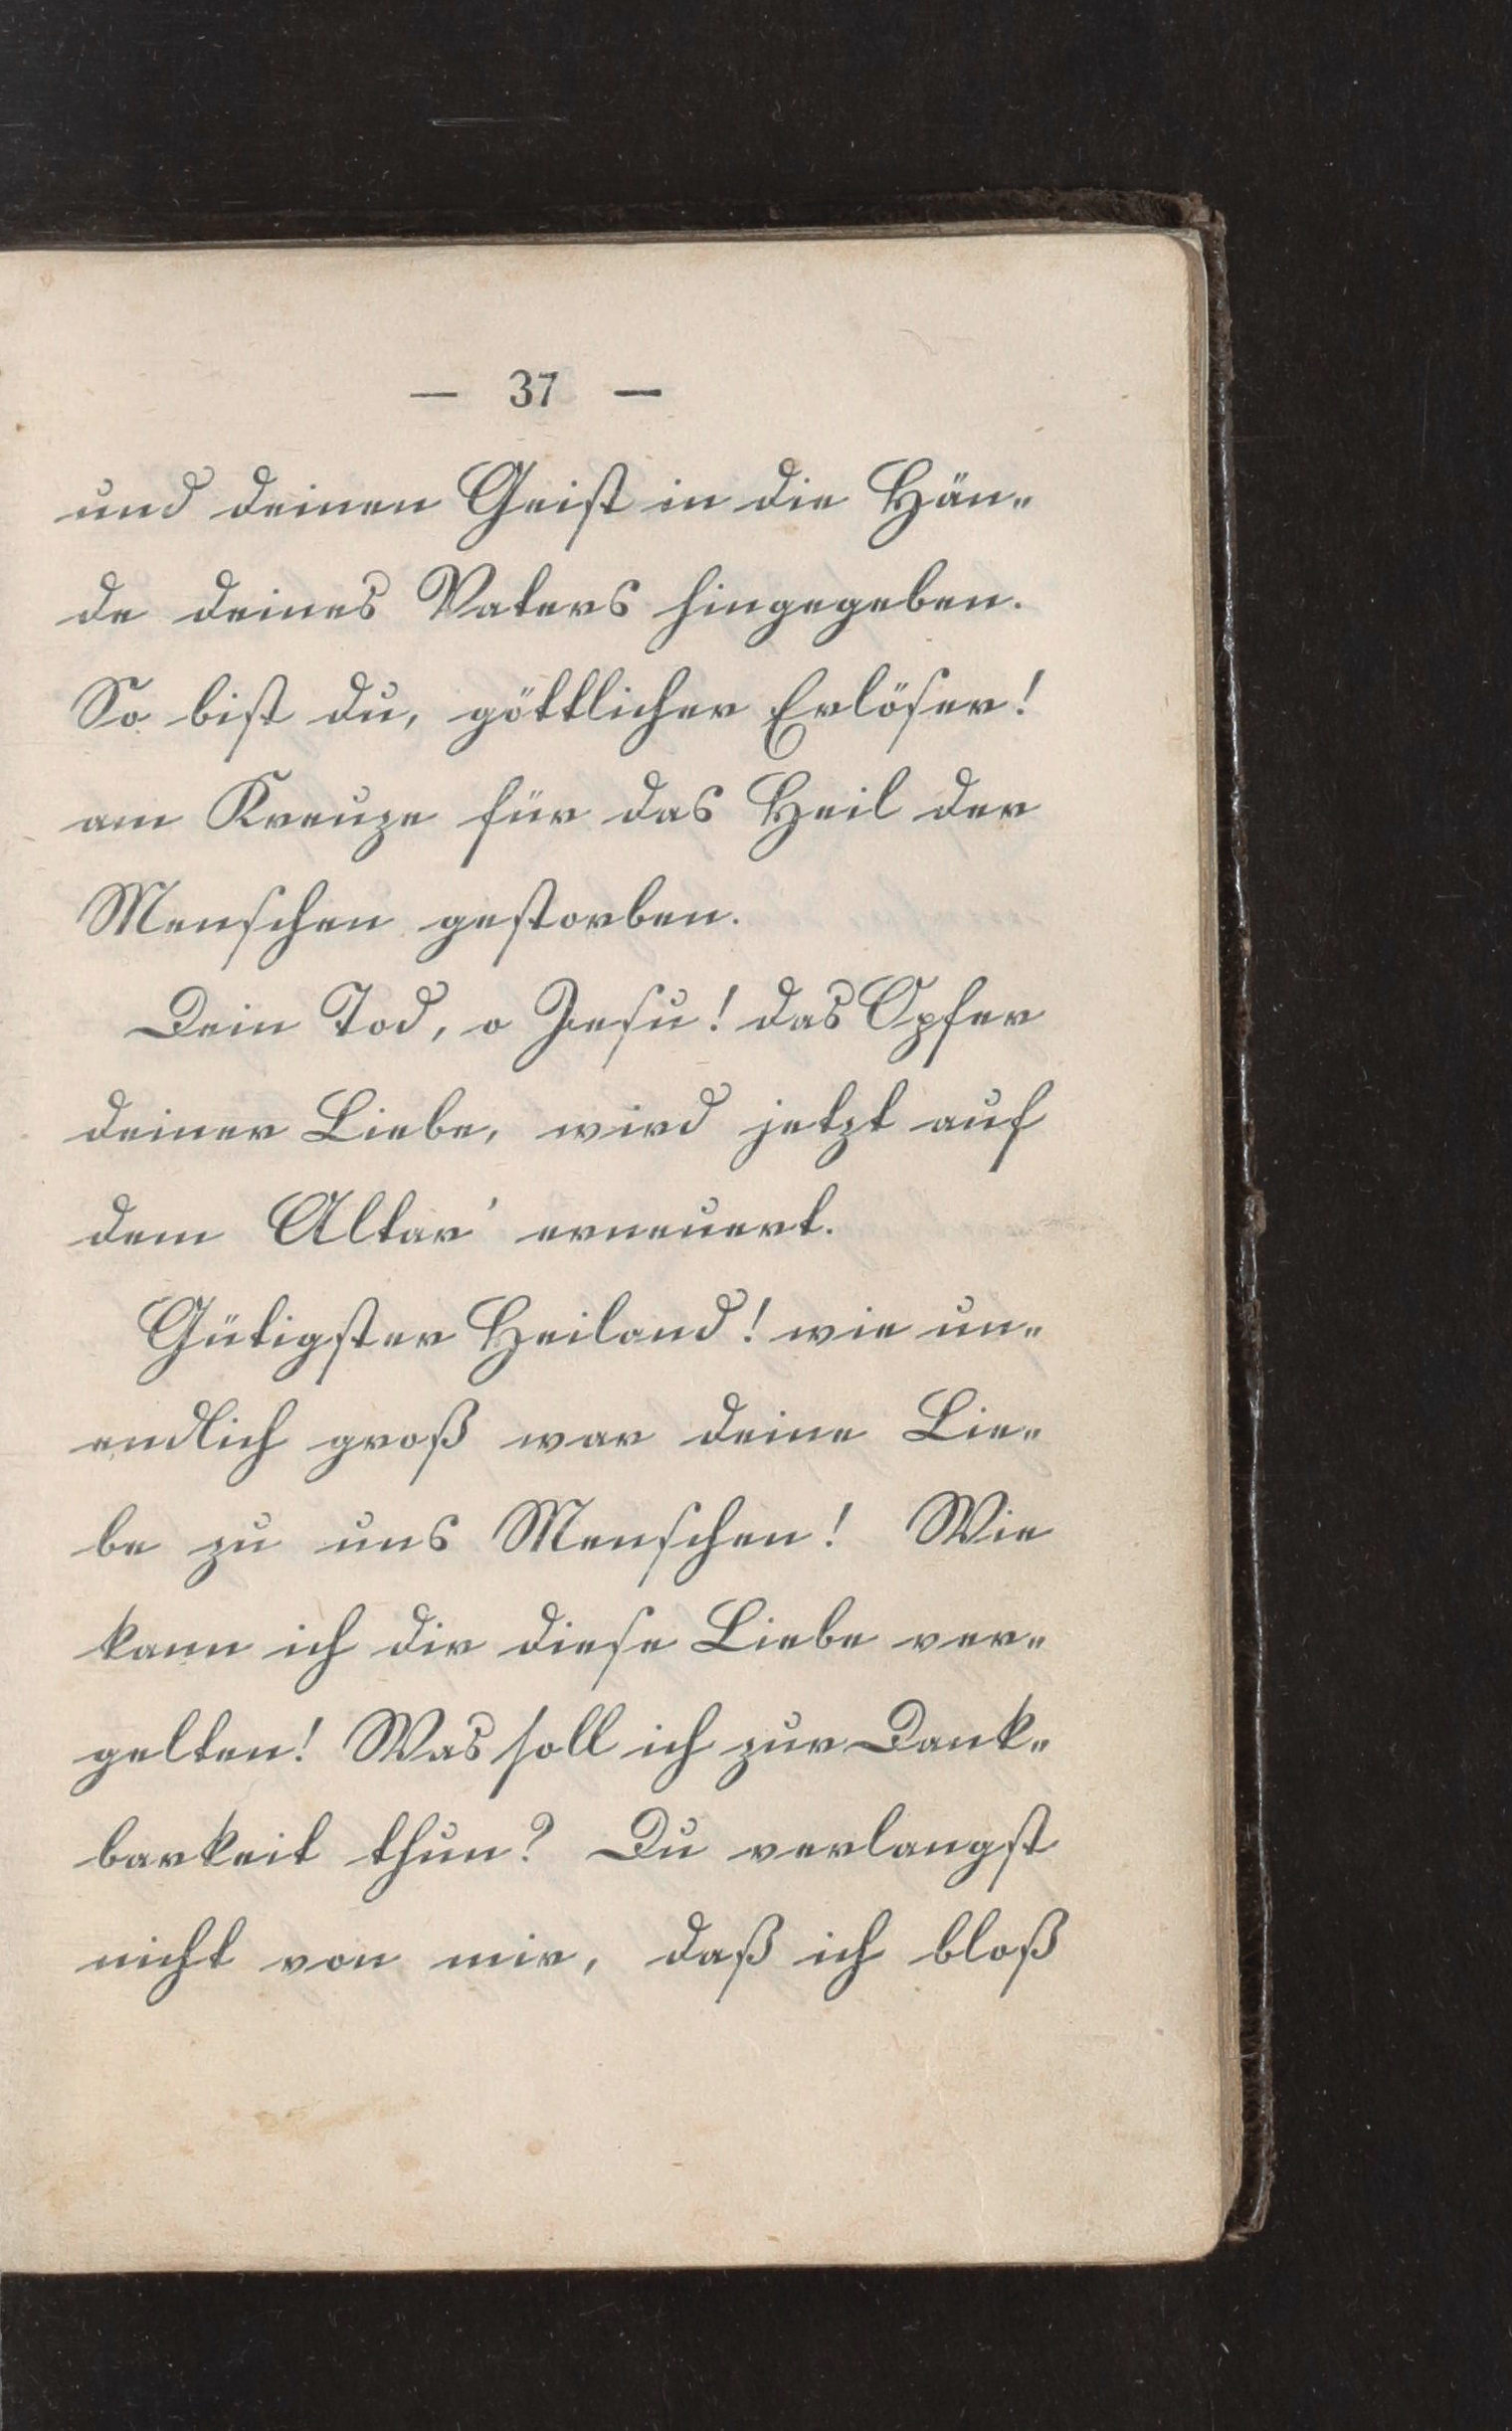 — 37 —
und deinen Geist in die Hän-
de deines Vaters hingegeben.
So bist du, göttlicher Erlöser!
am Kreuze für das Heil der
Menschen gestorben.
Dein Tod, o Jesu! das Opfer
deiner Liebe, wird jetzt auf
dem Altar' erneuert.
Gütigster Heiland! wie un-
endlich groß war deine Lie-
be zu uns Menschen! Wie
kann ich dir diese Liebe ver-
gelten! Was soll ich zur Dank-
barkeit thun? Du verlangst
nicht von mir, daß ich bloß